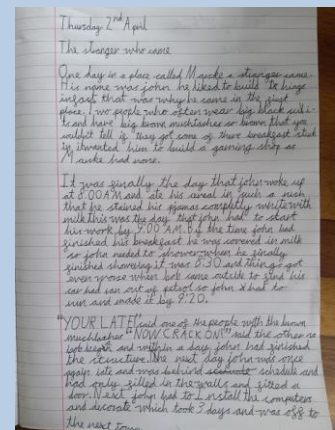 Thursday 2nd April
The stranger who came
One day in a place called M a stranger came.
His name was john he liked to build things
infact that was why he came in the first
place. Two people who often wear big black suit
s and have big brown mushtashes so brown that you
wouldn't tell if they got some of there breakfast stuck
in it wanted him to build a gaming shop as
M had none.
It was finally the day that john woke up
at 8:00 AM and ate his cereal in such a rush
that he stained his pjamas completly white with
milk this was the day that john had to start
his work by 9:00 AM. By the time john had
finished his breakfast he was covered in milk
so john needed to shower when he finally
finished showering it was 8:30 and things got
even worse when he came outside to find his
car had ran out of petrol so john had to
run and made it by 9:20.
"YOUR LATE" said one of the people with the brown
mushtasher "NOW CRACK ON!" said the other so
began and within a day john had finished
the structure. The next day john was once
again late and was behind schedule and
had only filled in the walls and fitted a
door. Next john had to install the computers
and decorate which took 7 days and was off to
the next town.